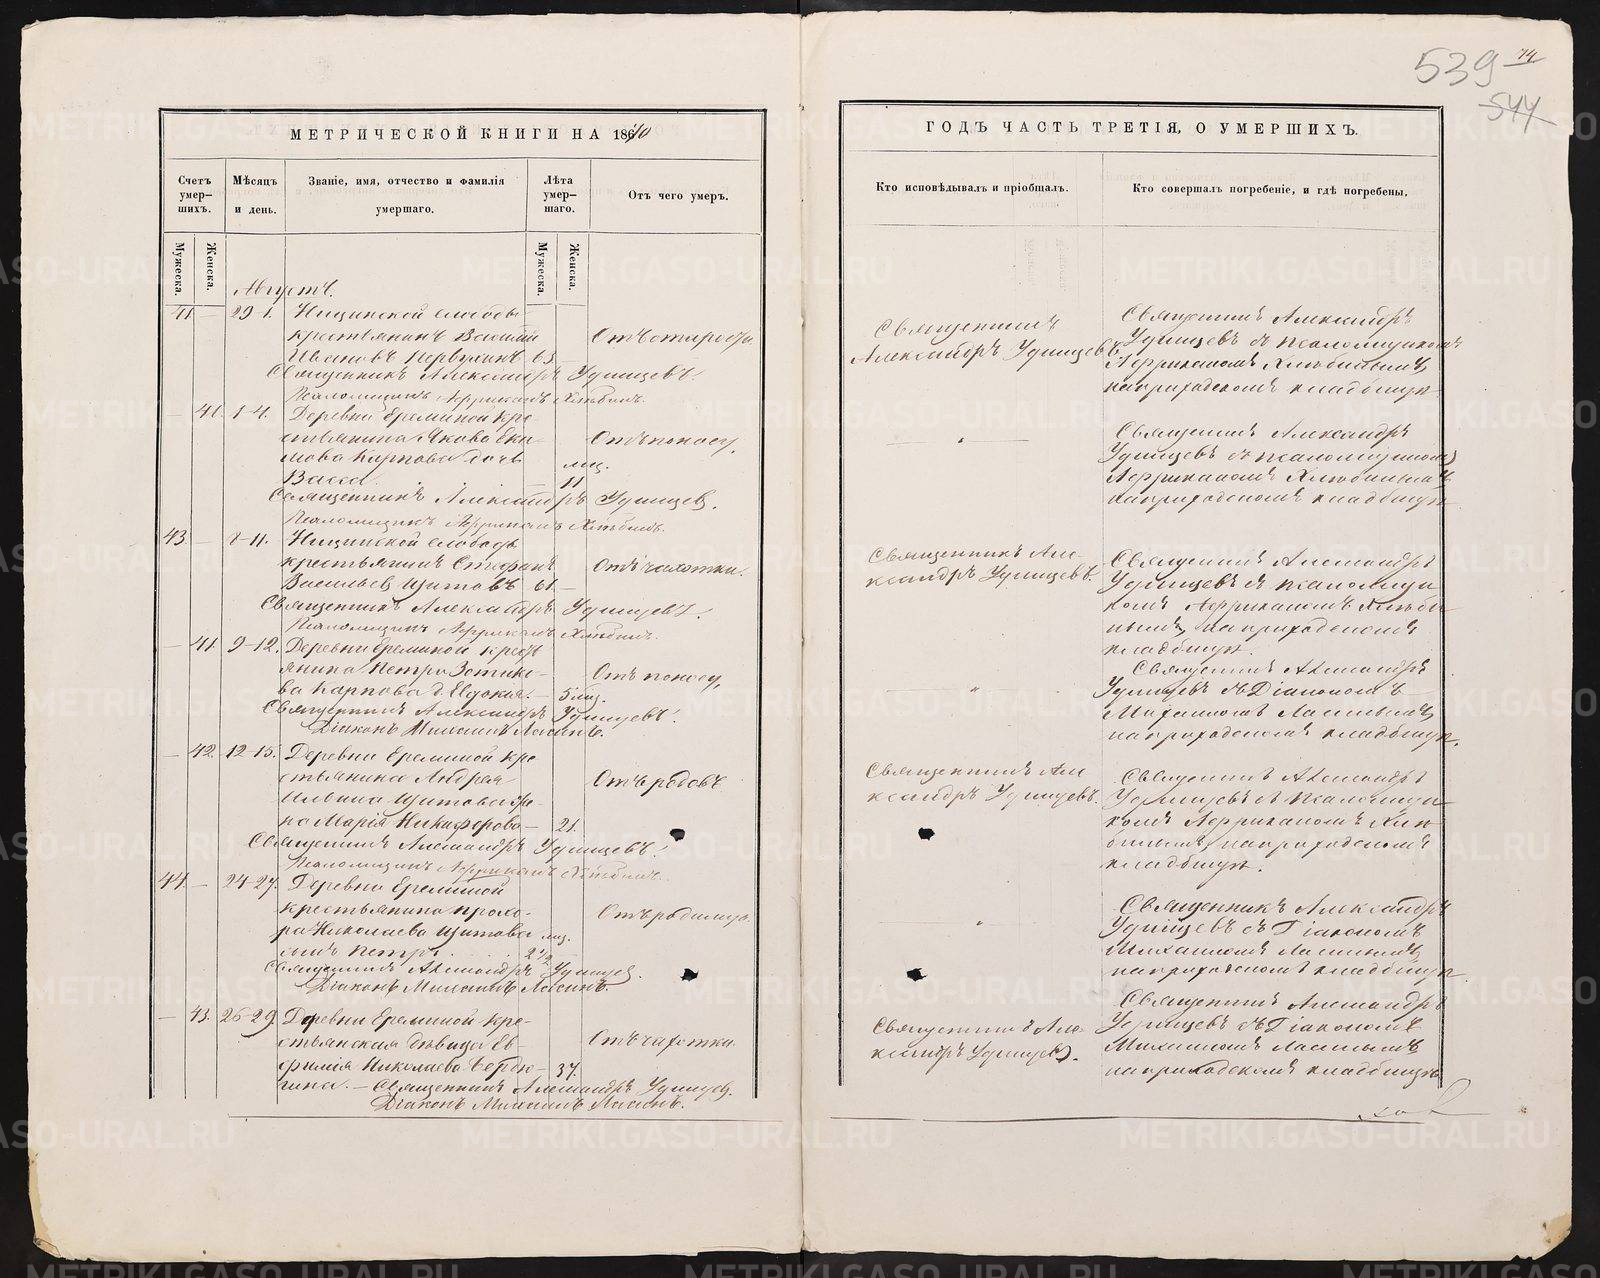 539 74
544
МЕТРИЧЕСКОЙ КНИГИ НА 1870
Счетъ умер-шихъ.
Мѣсяцъ и день.
Званіе, имя, отчество и фамилія умершаго.
Лѣта умер-шаго.
Отъ чего умеръ.
Мужеска.
Женска.
Мужеска.
Женска.
Августъ.
41 — 29-1. Ницинской слободы
крестьянинъ Василій Отъ старости
Ивановъ Первухинъ 63 —
Священникъ Александръ Удинцевъ.
Псаломщикъ Африканъ Хлѣбинъ.
— 40. 1-4. Деревни Ереминой кре-
стьянина Якова Еки- Отъ поносу,
мова Карпова дочь мц.
Васса. — 11
Священникъ Александръ Удинцевъ.
Псаломщикъ Африканъ Хлѣбинъ.
43. — 8-11. Ницинской слободы
крестьянинъ Стефанъ Отъ чахотки.
Васильевъ Щитовъ 61 —
Священникъ Александръ Удинцевъ.
Псаломщикъ Африканъ Хлѣбинъ.
— 41. 9-12. Деревни Ереминой кресть-
янина Петра Зотико- Отъ поносу,
ва Карпова д. Евдокія. — 5 мц.
Священникъ Александръ Удинцевъ.
Діаконъ Михаилъ Ласинъ.
— 42. 12-15. Деревни Ереминой кре
стьянина Андрея Отъ родовъ
Ильина Щитова же-
на Марія Никифорова — 21.
Священникъ Александръ Удинцевъ.
Псаломщикъ Африканъ Хлѣбинъ.
44. — 24-27. Деревни Ереминой
крестьянина Прохо- Отъ родимца
ра Николаева Щитова мц.
сынъ Петръ. 2 1/2
Священникъ Александръ Удинцевъ.
Діаконъ Михаилъ Ласинъ.
— 43. 26-29. Деревни Ереминой кре-
стьянская дѣвица Ев- Отъ чахотки
фимія Николаева Вердю- — 37.
гина. — Священникъ Александръ Удинцевъ.
Діаконъ Михаилъ Ласинъ.
ГОДЪ ЧАСТЬ ТРЕТІЯ, О УМЕРШИХЪ.
Кто исповѣдывалъ и пріобщалъ.
Кто совершалъ погребеніе, и гдѣ погребены.
Священникъ
Александръ Удинцевъ
Священникъ Александръ
Удинцевъ съ псаломщикомъ
Африканомъ Хлѣбинымъ,
на приходскомъ кладбищѣ
Священникъ Александръ
Удинцевъ съ псаломщикомъ
Африканомъ Хлѣбинымъ
на приходскомъ кладбищѣ
Священникъ Але-
ксандръ Удинцевъ.
Священникъ Александръ
Удинцевъ съ псаломщи
комъ Африканомъ Хлѣби
нымъ, на приходскомъ
кладбищѣ.
Священникъ Александръ
Удинцевъ съ Діакономъ
Михаиломъ Ласинымъ,
на приходскомъ кладбищѣ.
Священникъ Але
ксандръ Удинцевъ.
Священникъ Александръ
Удинцевъ съ псаломщи
комъ Африканомъ Хлѣ
бинымъ, на приходскомъ
кладбищѣ.
Священникъ Александръ
Удинцевъ съ Діакономъ
Михаиломъ Ласинымъ,
на приходскомъ кладбищѣ
Священникъ Але-
ксандръ Удинцевъ.
Священникъ Александръ
Удинцевъ съ Діакономъ
Михаиломъ Ласинымъ,
на приходскомъ кладбищѣ
METRIKI.GASO-URAL.RU